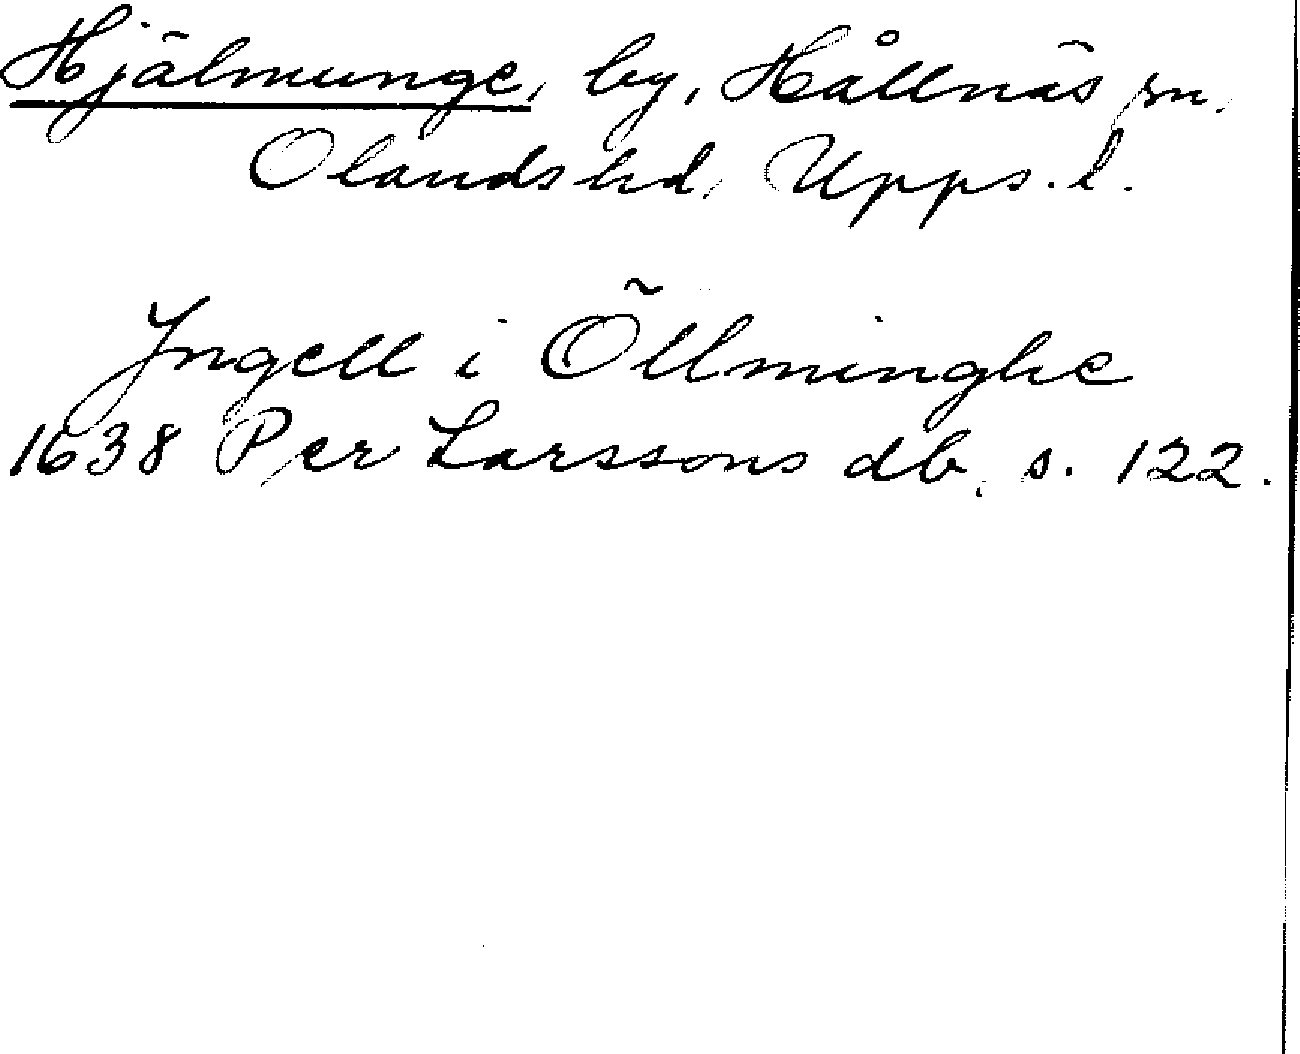 Hjälmunge, by, Hållnäs sn.
Olands hd, Upps. l.
Ingell i Öllminghe
1638 Per Larssons db. s. 122.